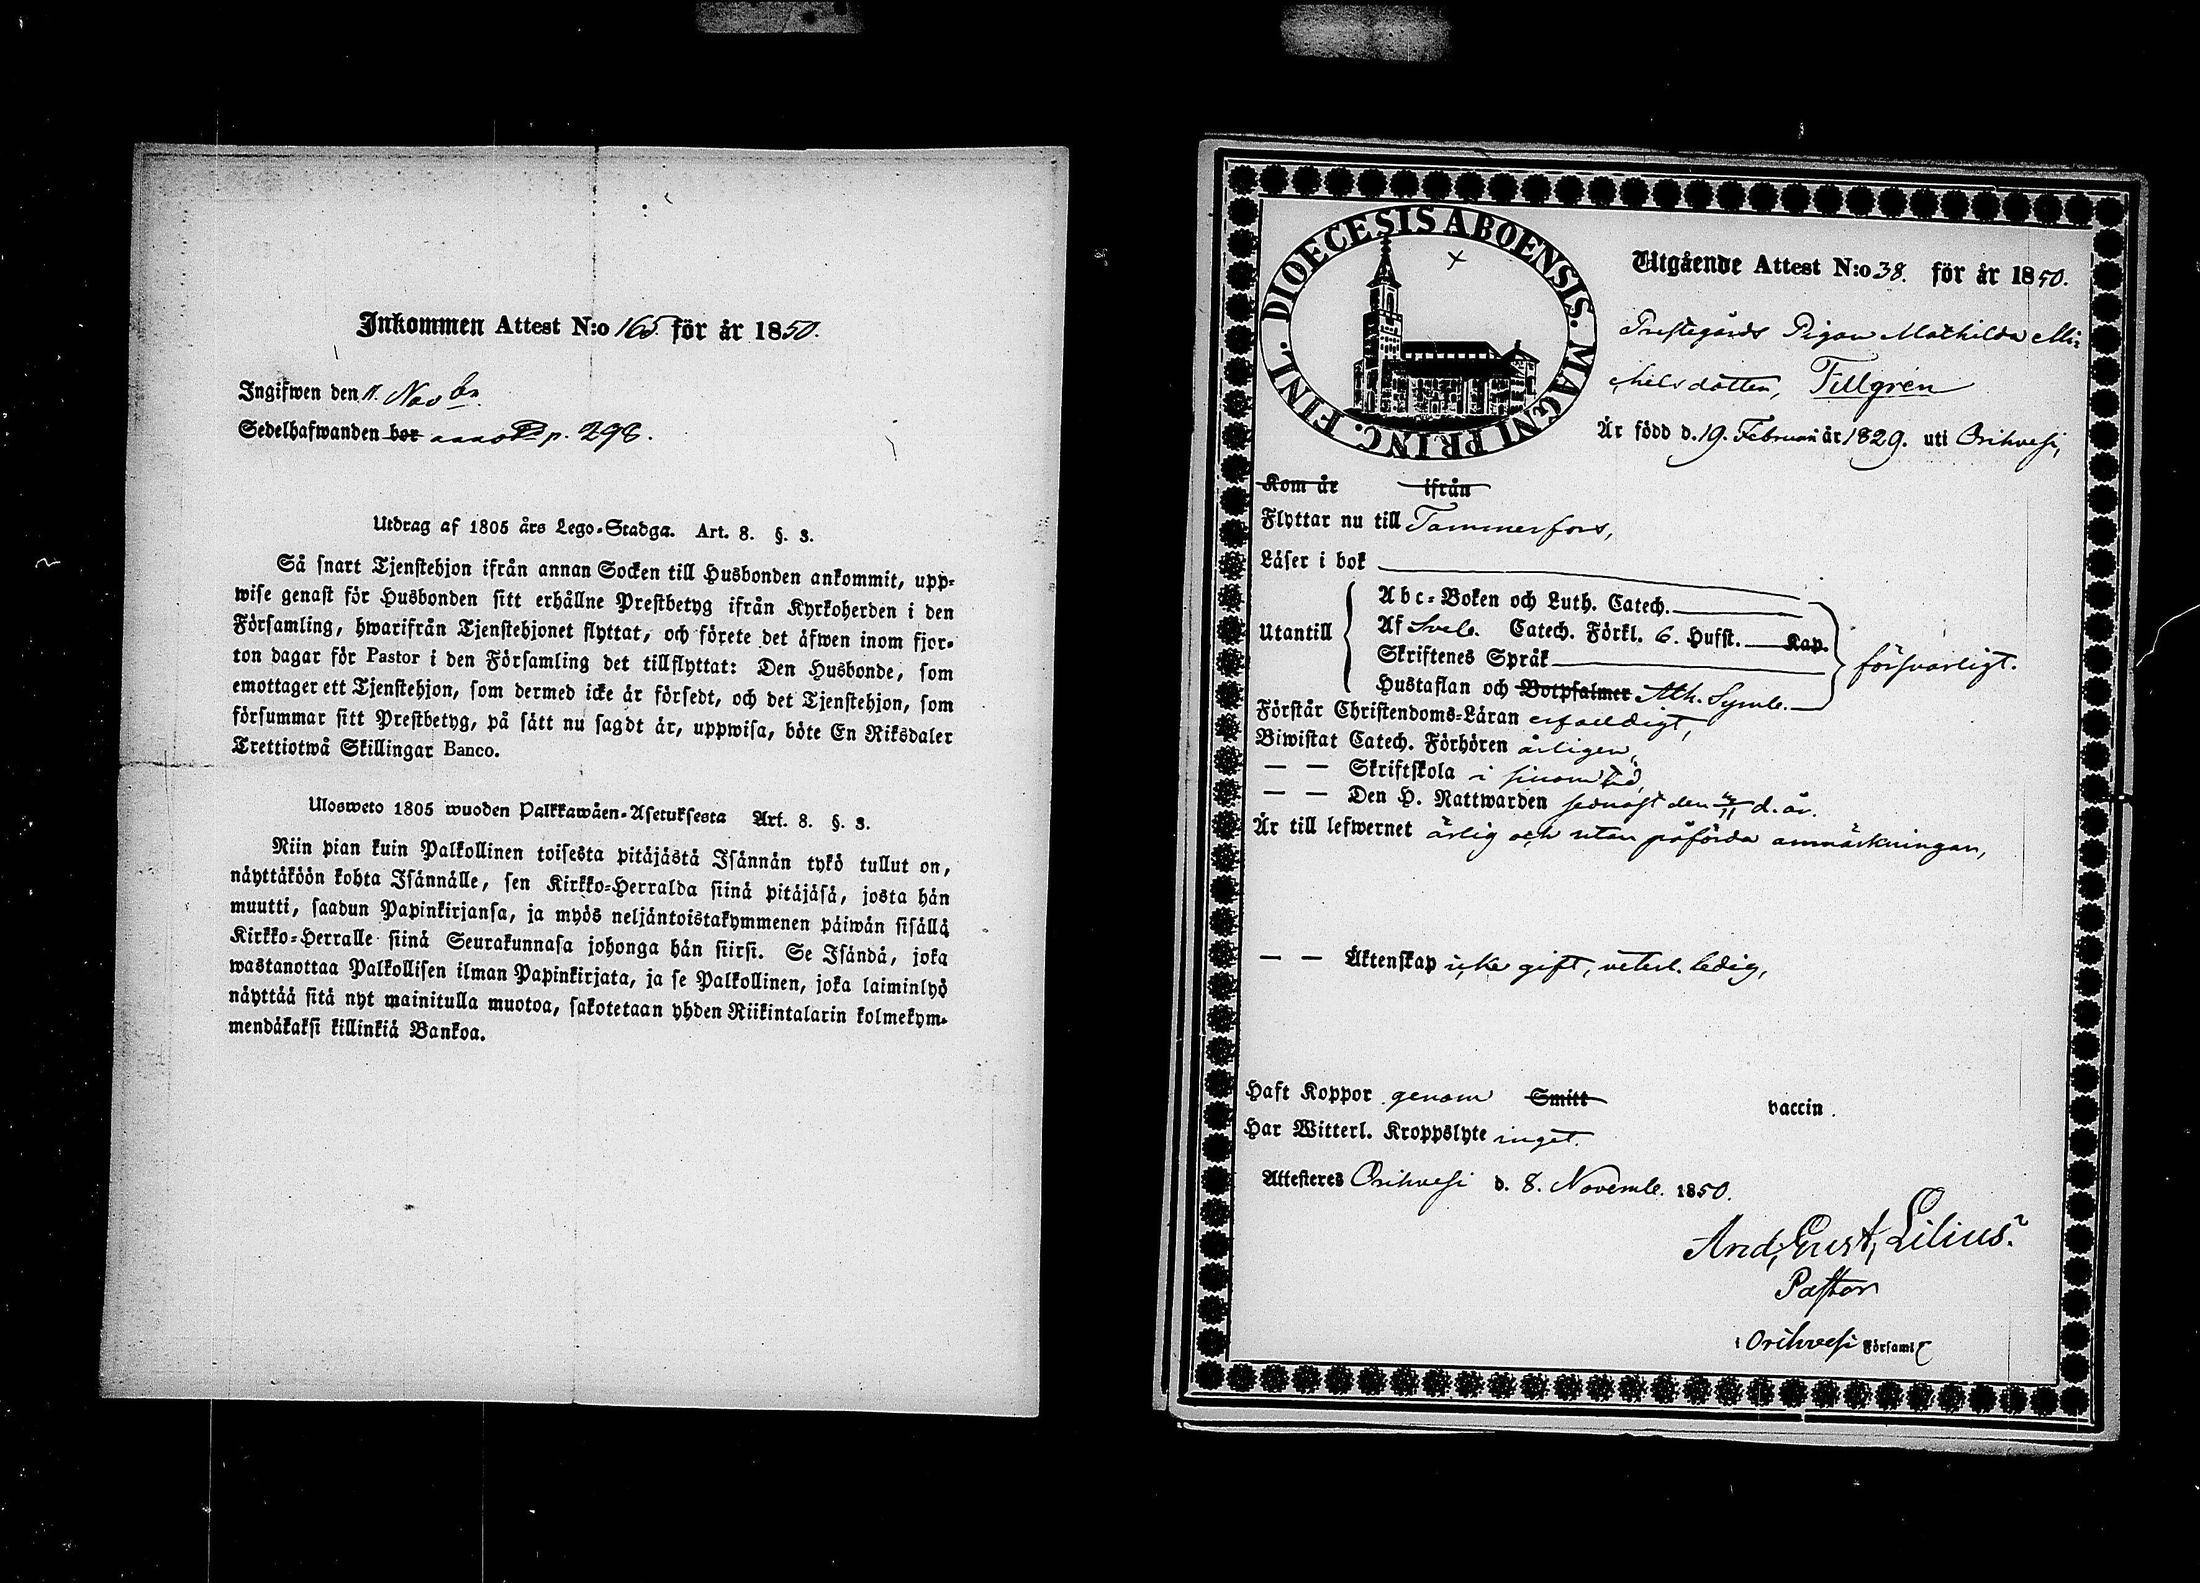 Inkommen Attest N:o 165 för år 1850.
Ingifwen den 11. Novbr.
Sedelhafwanden bor p. 298.
Utdrag af 1805 års Lego-Stadga. Art. 8. §. 3.
Så snart Tjenstehjon ifrån annan Socken till Husbonden ankommit, upp-
wise genast för Husbonden sitt erhållne Prestbetyg ifrån Kyrkoherden i den
Församling, hwarifrån Tjenstehjonet flyttat, och förete det äfwen inom fjor-
ton dagar för Pastor i den Församling det tillflyttat: Den Husbonde, som
emottager ett Tjenstehjon, som dermed icke är försedt, och det Tjenstehjon, som
försummar sitt Prestbetyg, på sätt nu sagdt är, uppwisa, böte En Riksdaler
Trettiotwå Skillingar Banco.
Ulosweto 1805 wuoden Palkkawäen-Asetuksesta Art. 8. §. 3.
Niin pian kuin Palkollinen toisesta pitäjästä Isännän tykö tullut on,
näyttäköön kohta Isännälle, sen Kirkko-Herralda siinä pitäjäsä, josta hän
muutti, saadun Papinkirjansa, ja myös neljäntoistakymmenen päiwän sisällä
Kirkko-Herralle siinä Seurakunnasa johonga hän siirsi. Se Isändä, joka
wastanottaa Palkollisen ilman Papinkirjata, ja se Palkollinen, joka laiminlyö
näyttää sitä nyt mainitulla muotoa, sakotetaan yhden Riikintalarin kolmekym-
mendäkaksi killinkiä Bankoa.
DIOECESIS ABOENSIS. MAGNI PRINC. FINL.
Utgående Attest N:o 38. för år 1850.
Prestegårds Pigan Mathilda Mi-
chelsdotter, Tillgrén
Är född d. 19. Februari år 1829. uti Orihvesi,
Kom år ifrån
Flyttar nu till Tammerfors,
Läser i bok
Utantill
Abc-Boken och Luth. Catech.
Af Sveb. Catech. Förkl. 6. Hufst. Kap.
Skriftenes Språk
Hustaflan och Botpsalmer Ath. Symb.
försvarligt.
Förstår Christendoms-Läran erfoderligt,
Biwistat Catech. Förhören årligen,
— — Skriftskola i sinom tid,
— — Den H. Nattwarden sednast den d. år.
Är till lefwernet ärlig och utan påförda anmärkningar,
— — Äktenskap icke gift, veterl. ledig,
Haft Koppor genom Smitt vaccin.
Har Witterl. Kroppslyte inget.
Attesteres Orihvesi d. 8. Novemb. 1850.
And. Gust. Lilius.
Pastor
i Orihvesi Församl.